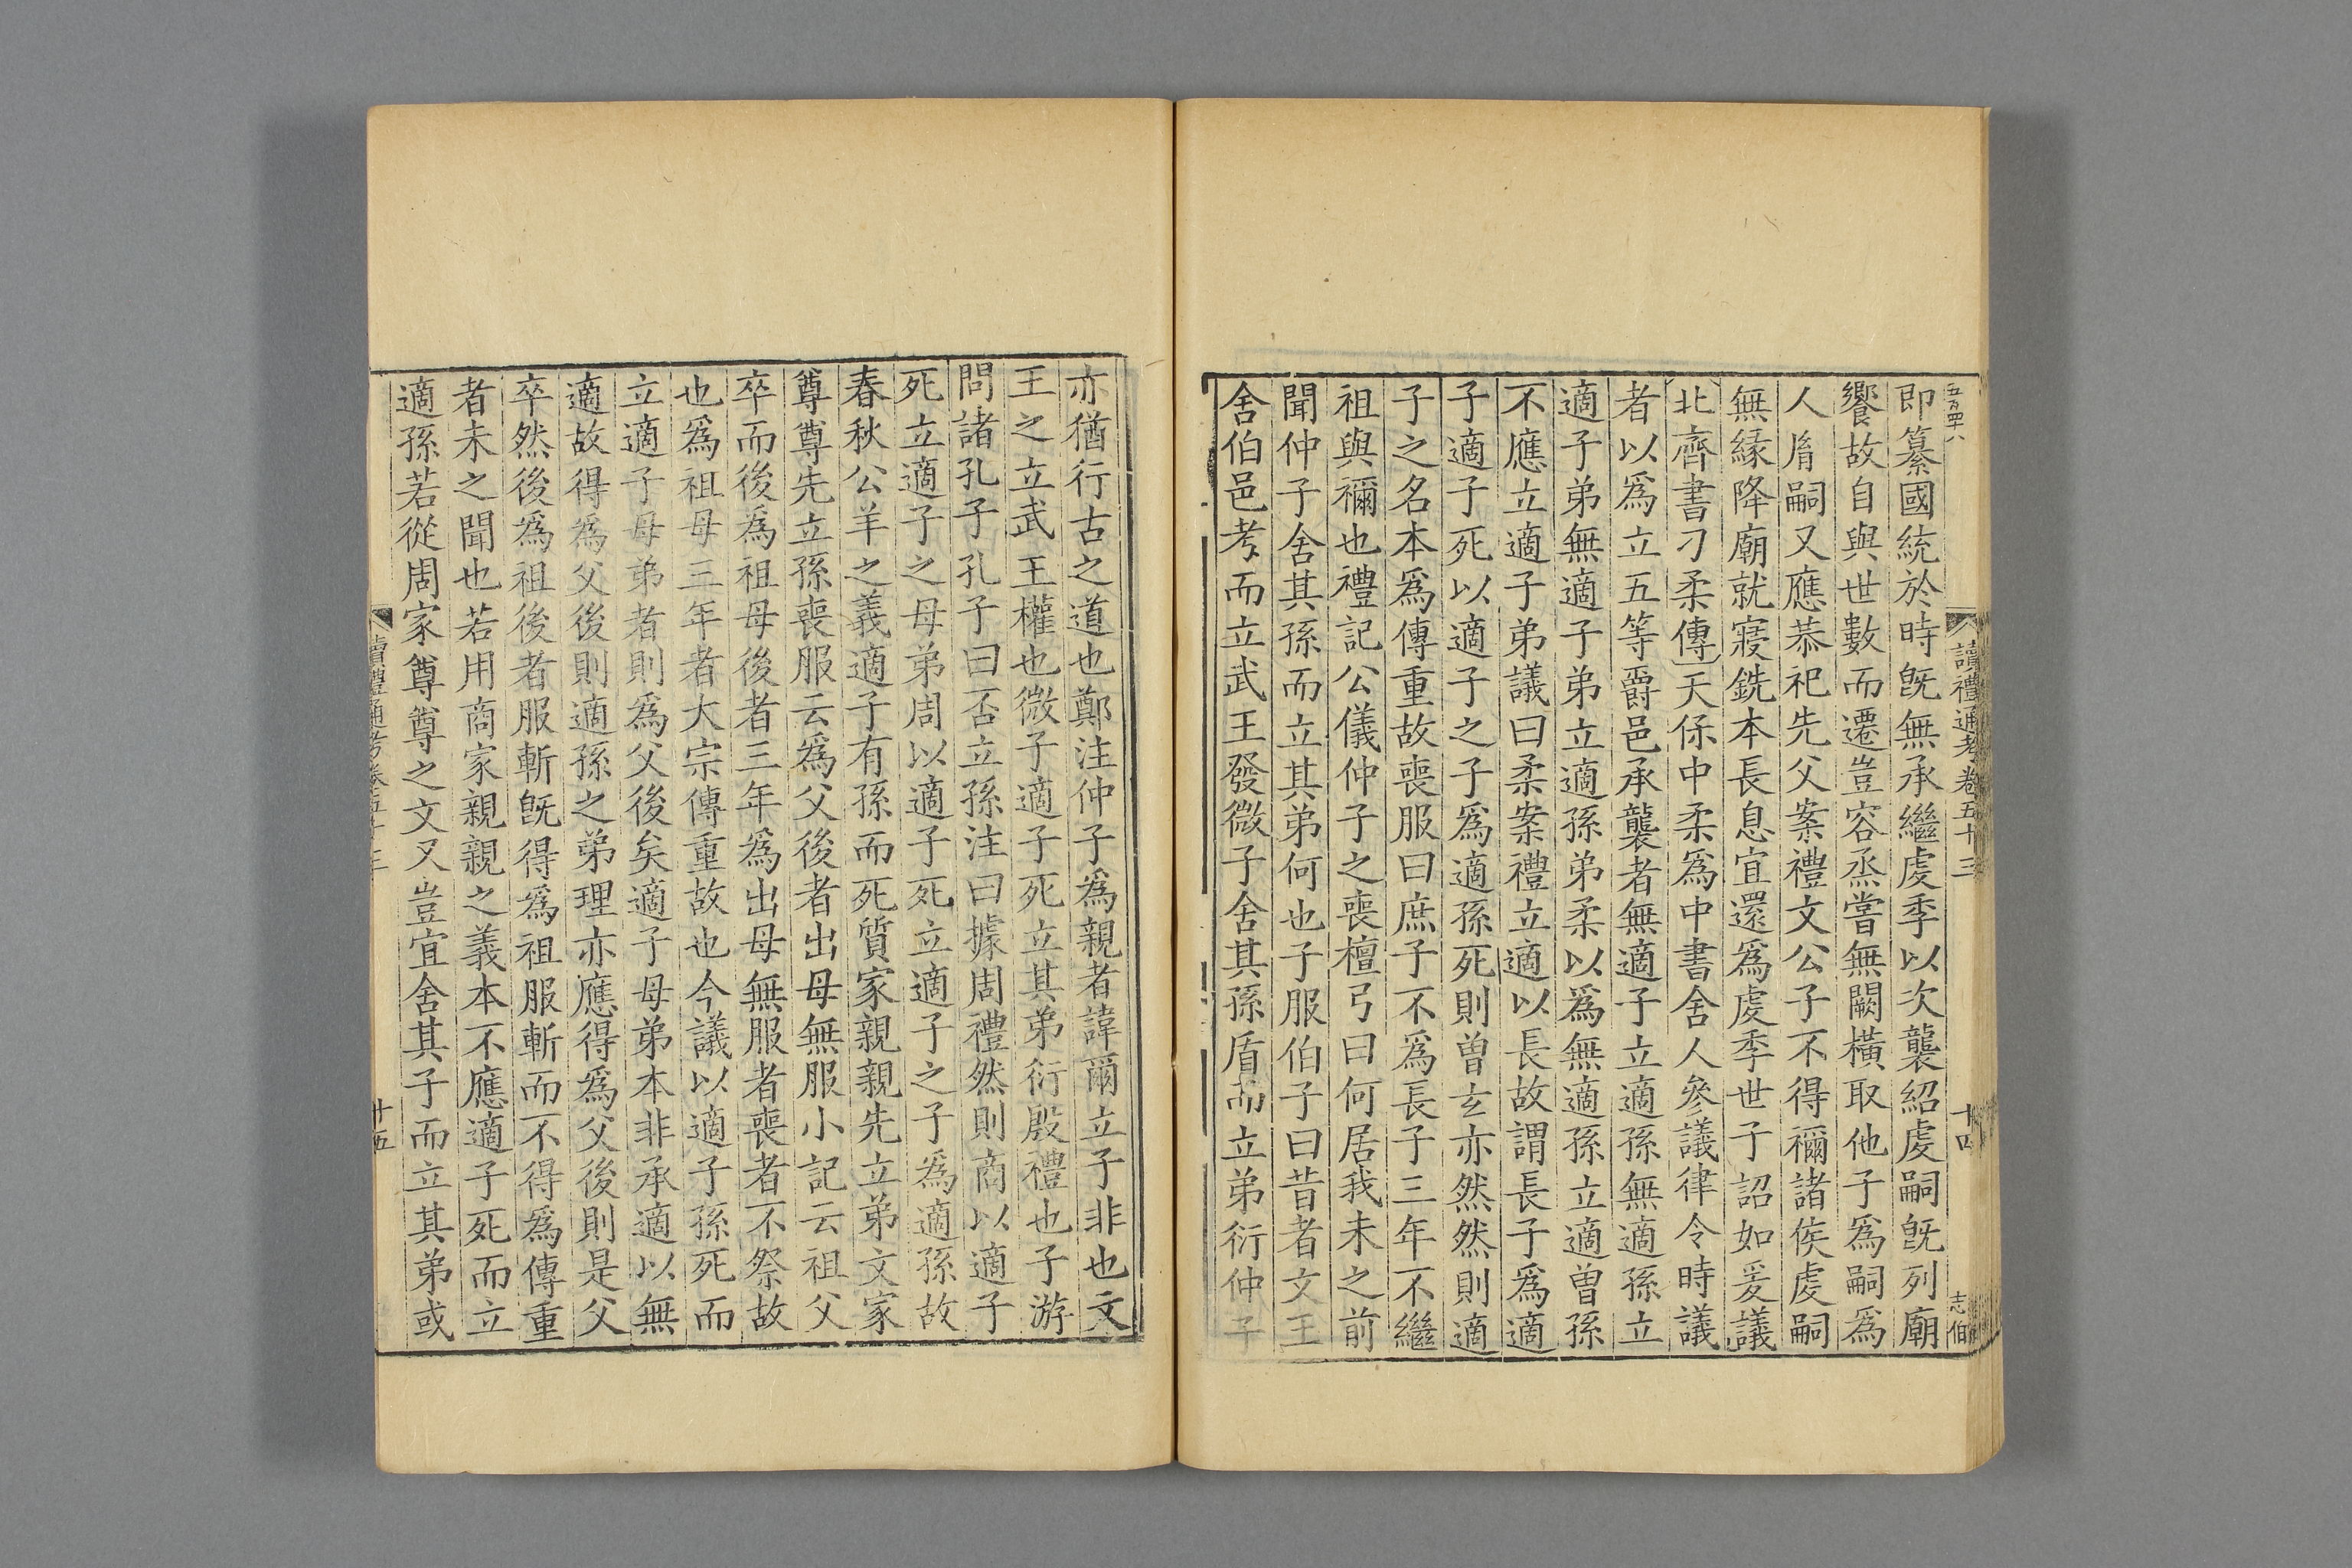 五百四十八
讀禮通考卷五十三
十四
志伯
即纂國統於時旣無承繼虔季以次襲紹虔嗣旣列廟
饗故自與世數而遷豈容烝嘗無闕橫取他子爲嗣爲
人胤嗣又應恭祀先父案禮文公子不得禰諸侯虔嗣
無緣降廟就寢銑本長息宜還爲虔季世子詔如爰議
北齊書刁柔傳天保中柔爲中書舍人參議律令時議
者以爲立五等爵邑承襲者無適子立適孫無適孫立
適子弟無適子弟立適孫弟柔以爲無適孫立適曾孫
不應立適子弟議曰柔案禮立適以長故謂長子爲適
子適子死以適子之子爲適孫死則曾玄亦然然則適
子之名本爲傳重故喪服曰庶子不爲長子三年不繼
祖與禰也禮記公儀仲子之喪檀弓曰何居我未之前
聞仲子舍其孫而立其弟何也子服伯子曰昔者文王
舍伯邑考而立武王發微子舍其孫盾而立弟衍仲子
亦猶行古之道也鄭注仲子爲親者諱爾立子非也文
王之立武王權也微子適子死立其弟衍殷禮也子游
問諸孔子孔子曰否立孫注曰據周禮然則商以適子
死立適子之母弟周以適子死立適子之子爲適孫故
春秋公羊之義適子有孫而死質家親親先立弟文家
尊尊先立孫喪服云爲父後者出母無服小記云祖父
卒而後爲祖母後者三年爲出母無服者喪者不祭故
也爲祖母三年者大宗傳重故也今議以適子孫死而
立適子母弟者則爲父後矣適子母弟本非承適以無
適故得爲父後則適孫之弟理亦應得爲父後則是父
卒然後爲祖後者服斬旣得爲祖服斬而不得爲傳重
者未之聞也若用商家親親之義本不應適子死而立
適孫若從周家尊尊之文又豈宜舍其子而立其弟或
讀禮通考卷五十三
十五